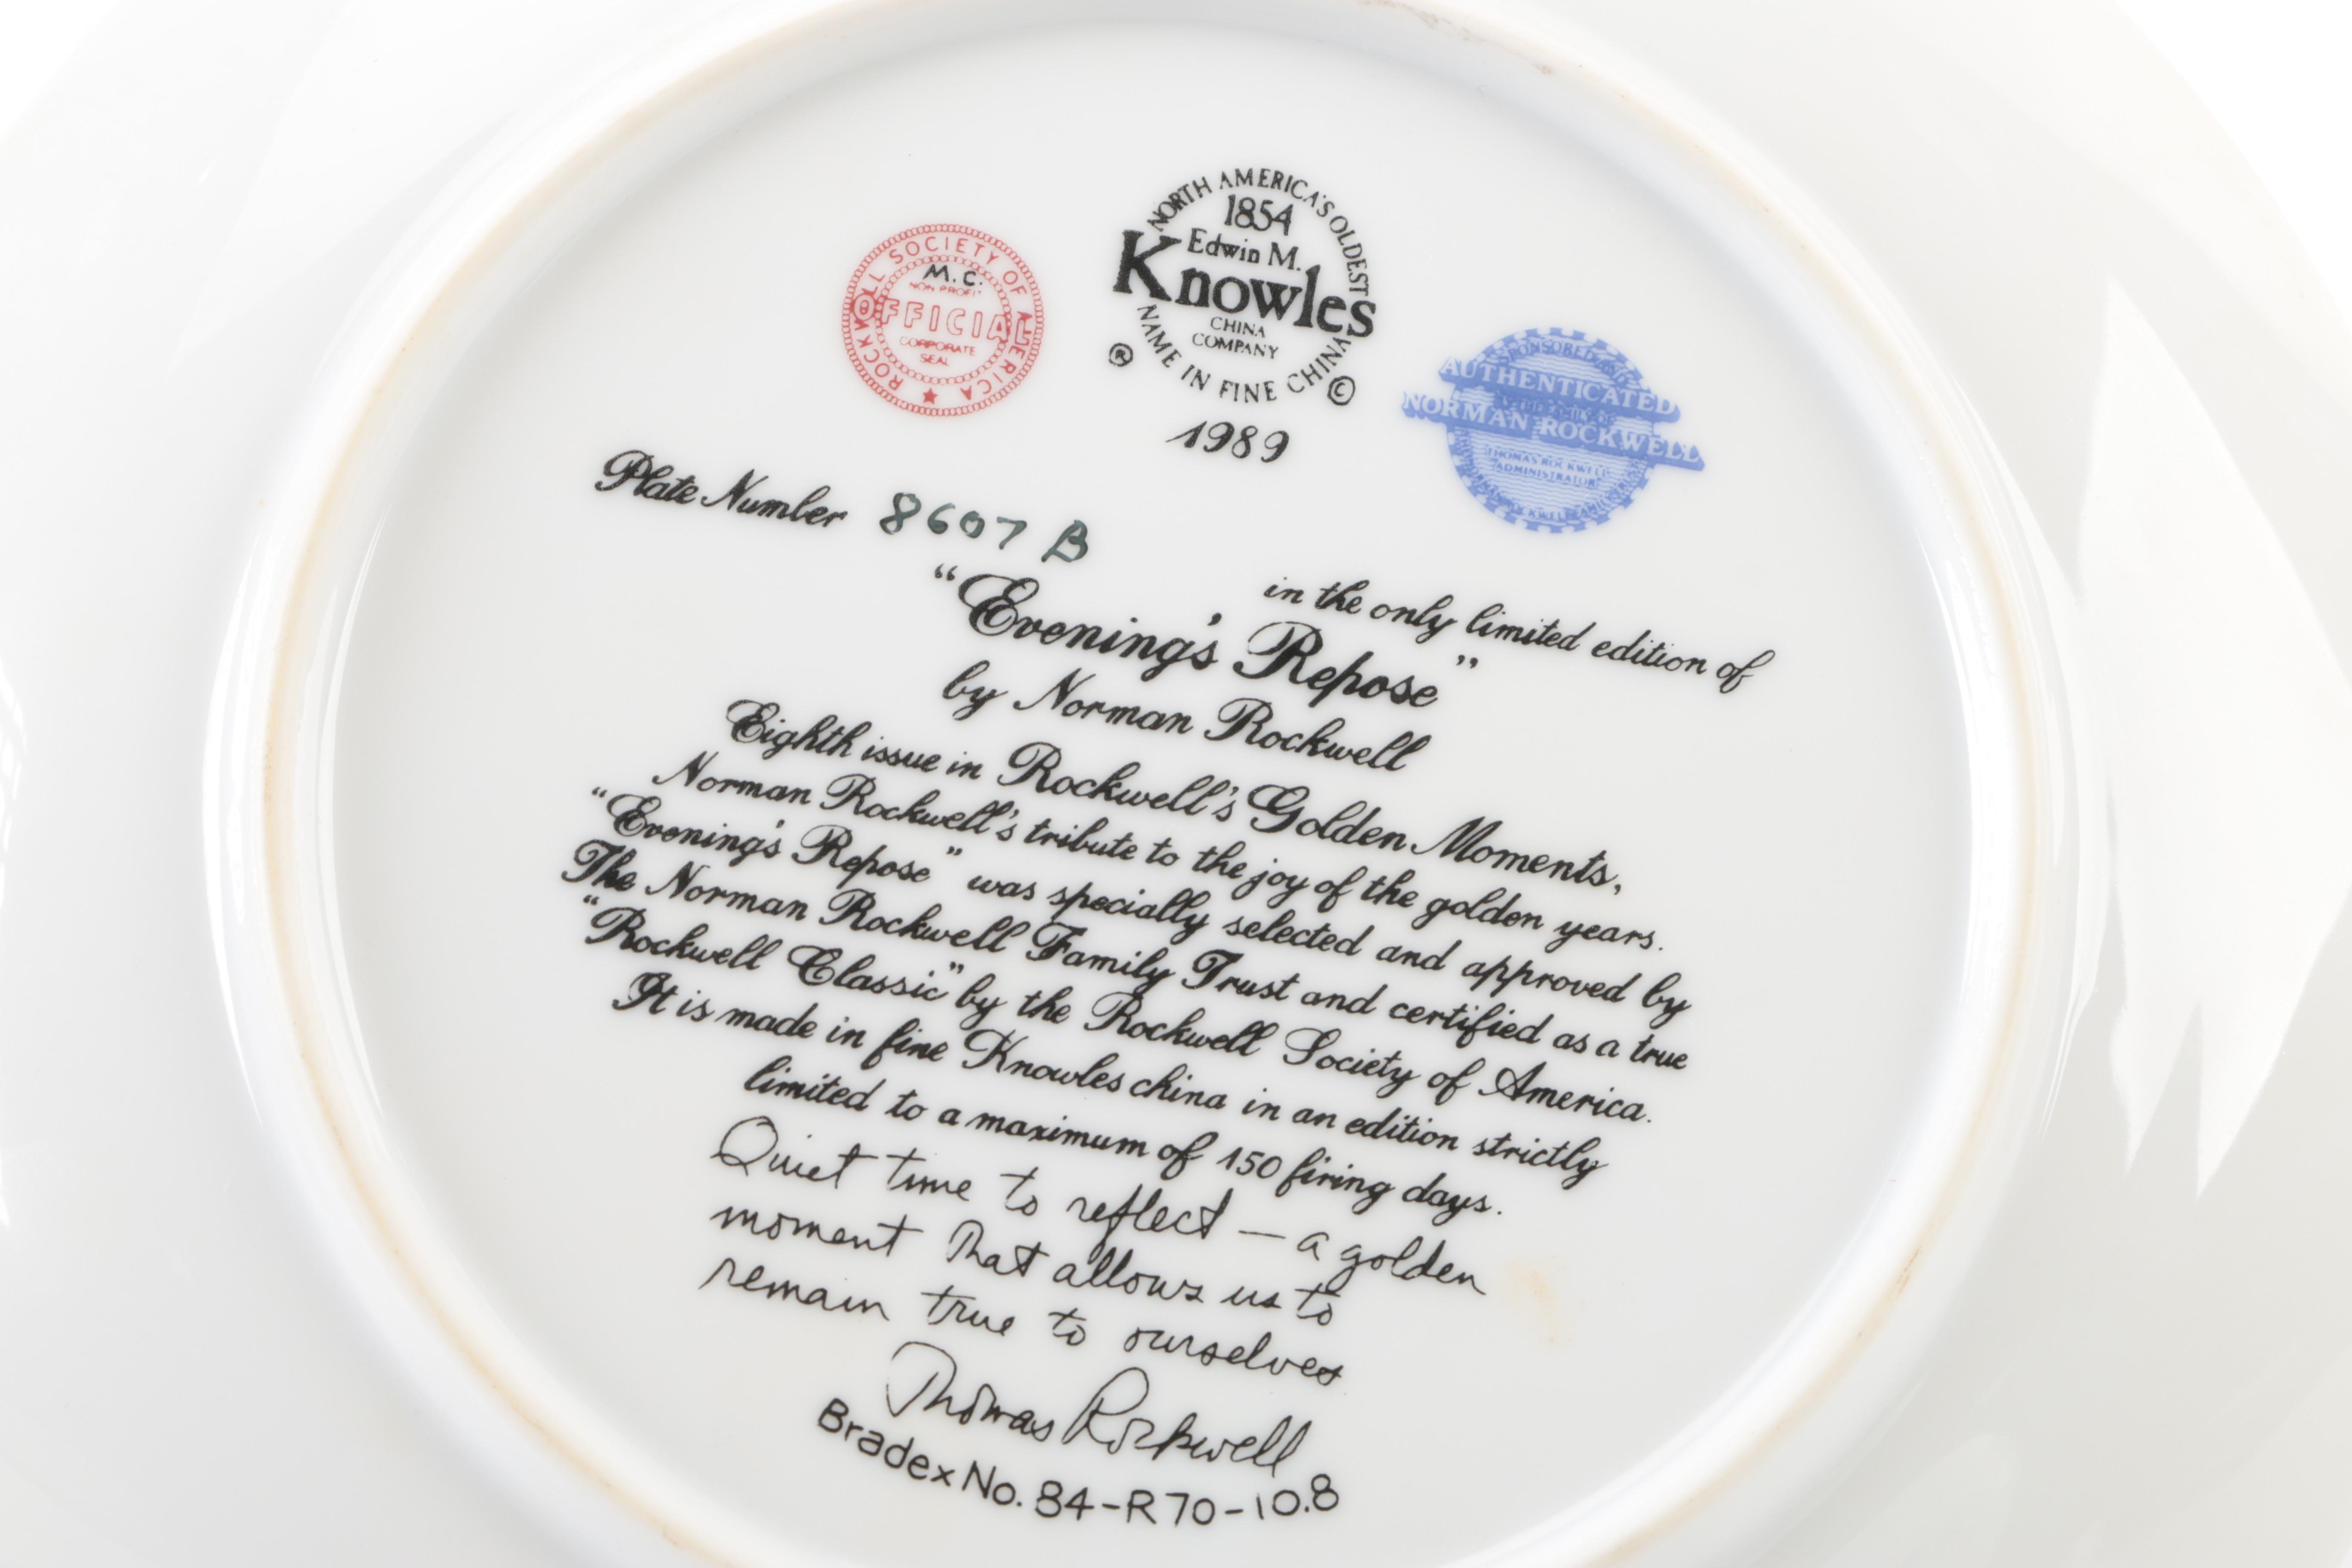 ROCKWELL SOCIETY OF AMERICA
M.C.
NON PROFIT
OFFICIAL
CORPORATE
SEAL
NORTH AMERICA'S OLDEST
1854
Edwin M.
Knowles
CHINA
COMPANY
NAME IN FINE CHINA
® ©
1989
SPONSORED
AUTHENTICATED
NORMAN ROCKWELL
THOMAS ROCKWELL
ADMINISTRATOR
Plate Number 8607 B
in the only limited edition of
“Evening's Repose”
by Norman Rockwell
Eighth issue in Rockwell's Golden Moments,
Norman Rockwell's tribute to the joy of the golden years.
“Evening's Repose” was specially selected and approved by
The Norman Rockwell Family Trust and certified as a true
“Rockwell Classic” by the Rockwell Society of America.
It is made in fine Knowles china in an edition strictly
limited to a maximum of 150 firing days.
Quiet time to reflect — a golden
moment that allows us to
remain true to ourselves
Thomas Rockwell
Bradex No. 84-R70-10.8